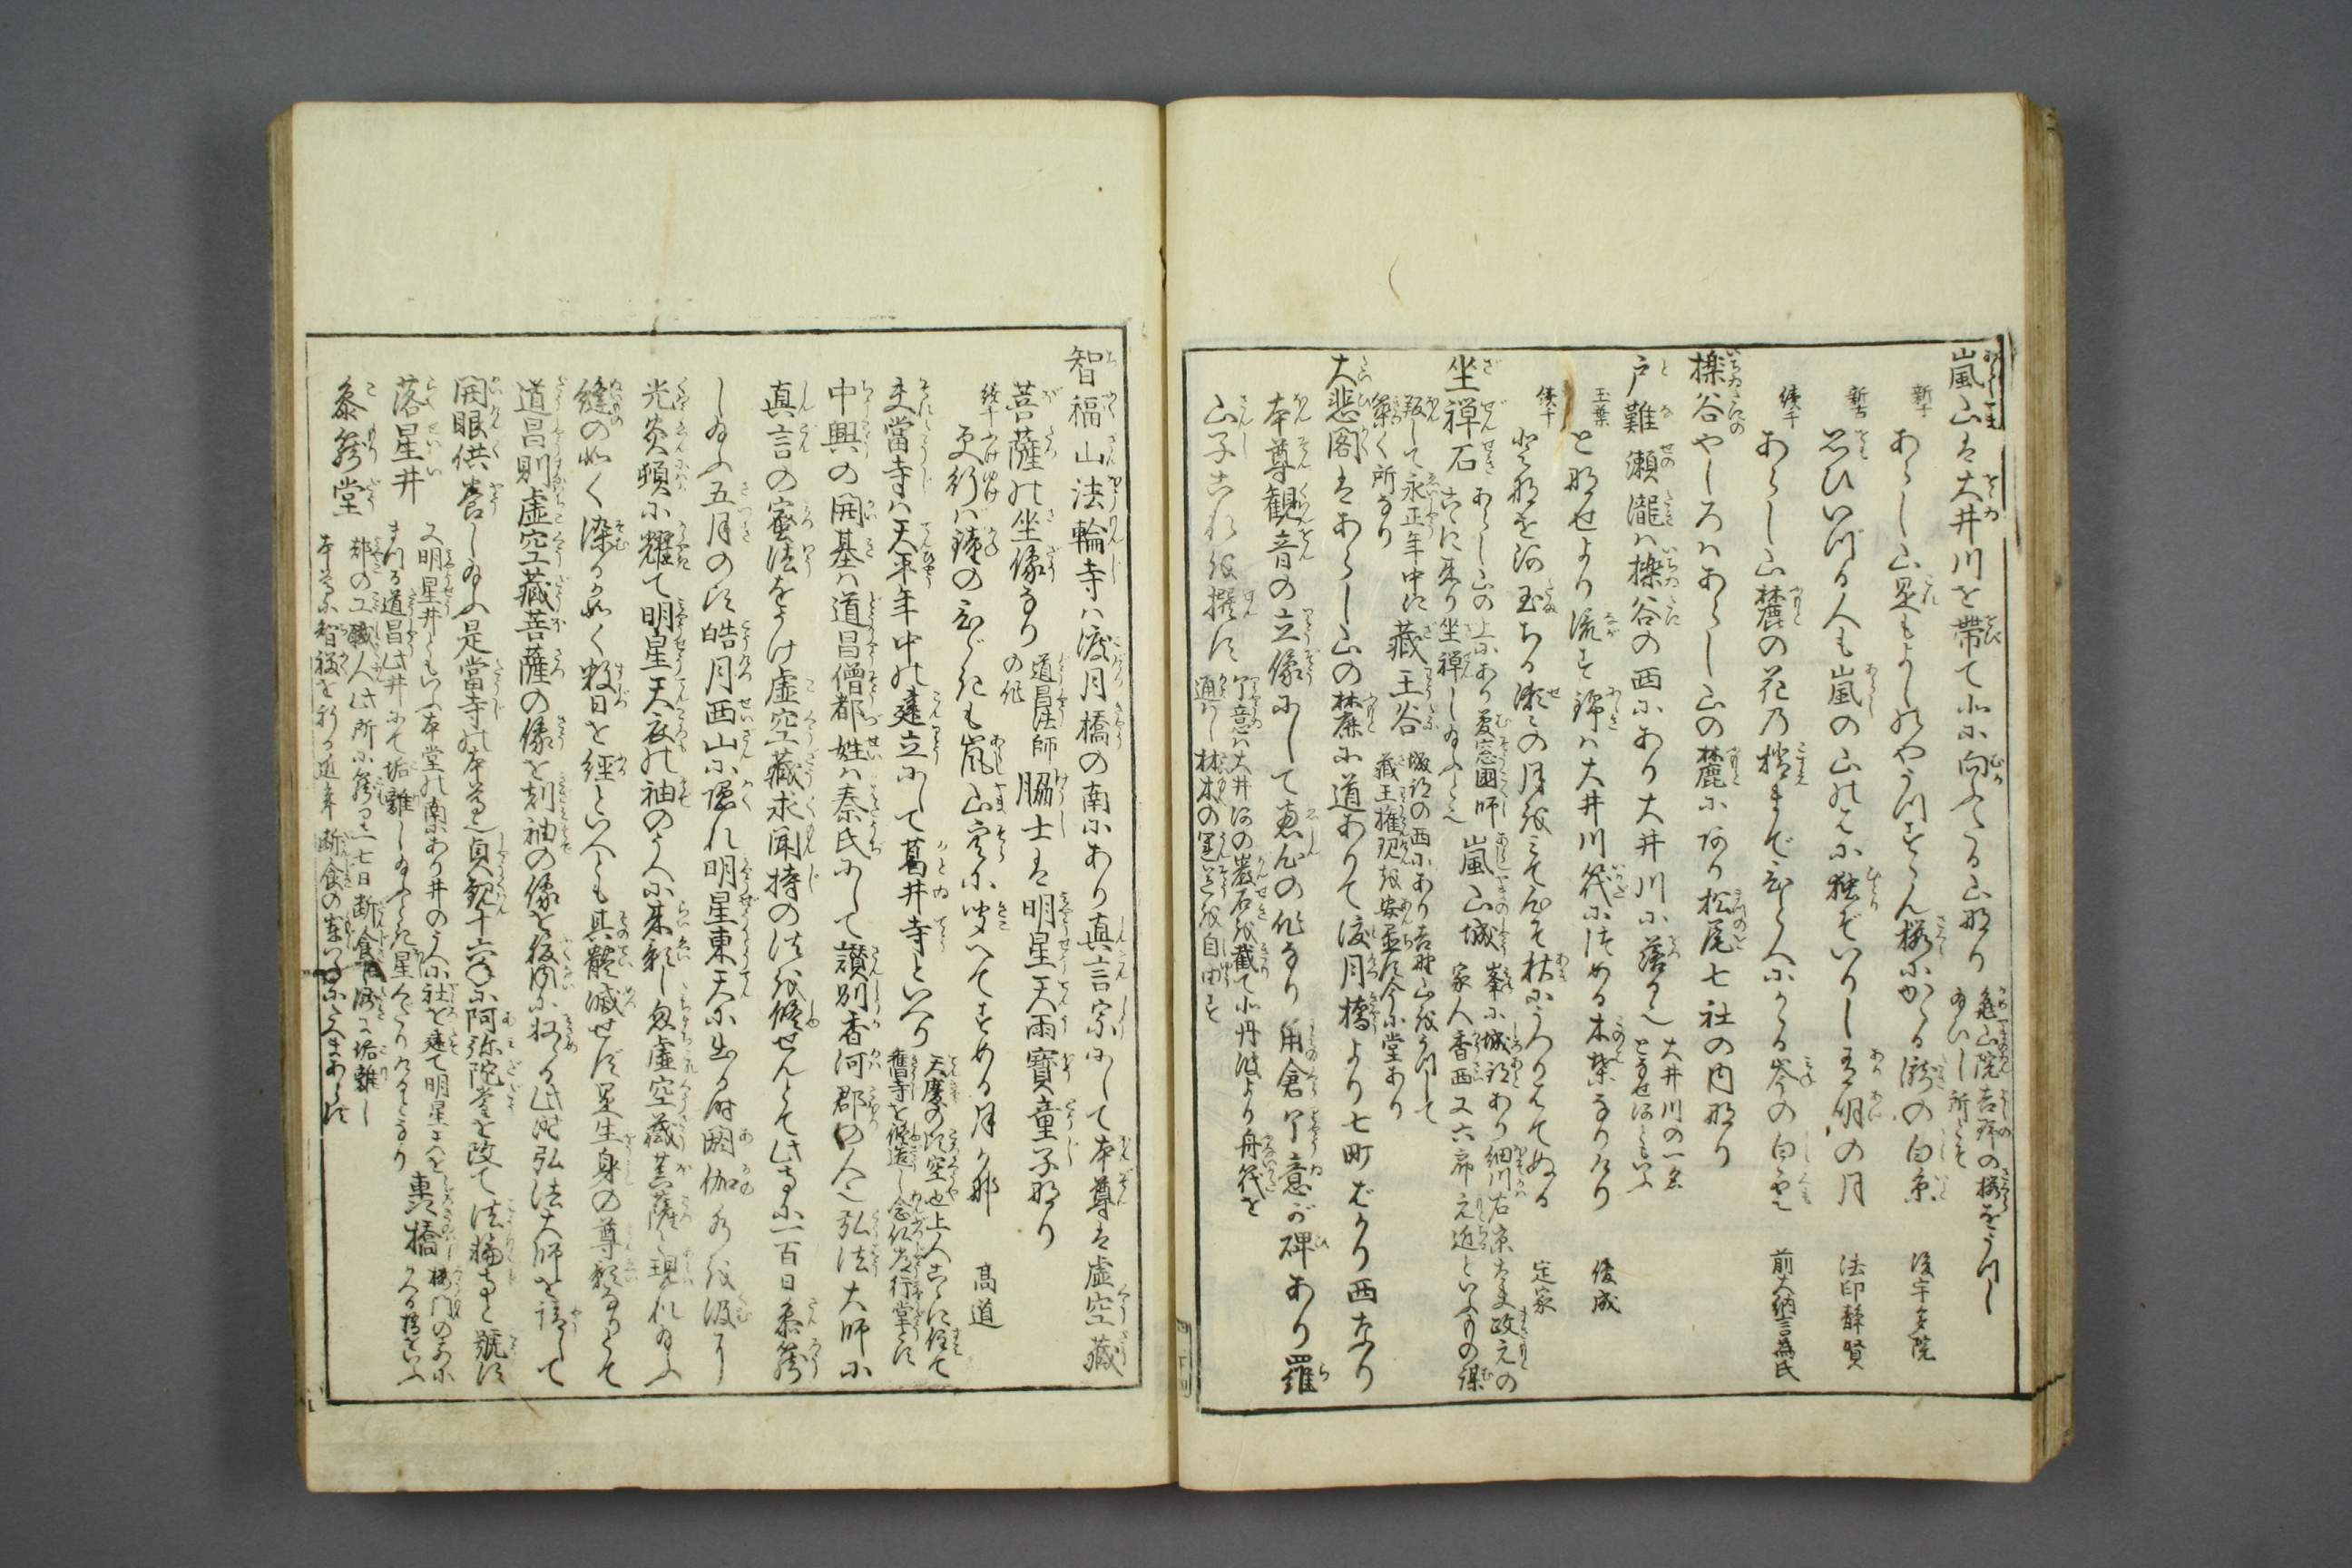 嵐山は大井川を帯て北に向ふたる山なり 亀山院吉野の桜をうつし
給ひし所とぞ
新千 あらし山是もよしのやうつすらん桜にかゝる滝の白糸 後宇多院
新古 思ひいづる人も嵐の山のはに独ぞいりし有明の月 法印静賢
続千 あらし山麓の花の梢まで一むらにかゝる峯の白雲 前大納言為氏
櫟谷やしろはあらし山の麓にあり松尾七社の内なり
戸難瀬滝は櫟谷の西にあり大井川に落る也 大井川の一名
となせ河ともいふ
玉葉 となせより流す錦は大井川筏につめる木葉なりけり 俊成
続千 となせ河玉ちる瀬々の月をみて心ぞ秋にうつりはてぬる 定家
坐禅石 あらし山の上にあり夢窓国師
こゝに来り坐禅し給ふと也
嵐山城 峯に城跡あり細川右京大夫政元の
家人香西又六郎元近といふものゝ
叛して永正年中に
築く所なり
蔵王谷 城跡の西にあり吉野山をうつして
蔵王権現を安置す今に堂あり
大悲閣はあらし山の麓に道ありて渡月橋より七町ばかり西なり
本尊観音の立像にして恵心の作なり角倉了意が碑あり羅
山子これを撰す 了意は大井河の巌石を截て北丹波より舟筏を
通はし材木の運送を自由す
智福山法輪寺は渡月橋の南にあり真言宗にして本尊は虚空蔵
菩薩の坐像なり 道昌法師
の作 脇士は明星天雨宝童子なり
続千 更行は鐘のひゞきも嵐山空に聞へてすめる月かな 高道
夫当寺は天平年中の建立にして葛井寺といへり 天慶の頃空也上人こゝに住て
旧寺を修造し念仏常行堂とす
中興の開基は道昌僧都姓は秦氏にして讃州香河郡の人也弘法大師に
真言の密法をうけ虚空蔵求聞持の法を修せんとて此寺に一百日参籠
し給ふ五月の頃皓月西山に隠れ明星東天に出る時閼伽水を汲けり
光炎頓に耀て明星天衣の袖のうへに来影し忽虚空蔵菩薩と現れ給ふ
縫の如く染るが如く数日を経といへども其体滅せず是生身の尊影なりとて
道昌則虚空蔵菩薩の像を刻袖の像を仏像の腹内に収る此時弘法大師を請じて
開眼供養し給ふ是当寺の本尊也貞観十六年に阿弥陀堂を改て法輪寺と号す
落星井 又明星井ともいふ本堂の南にあり井のうへに社を建て明星天を
まつる道昌此井にて垢離し給ふとき星くだりけるとなり 轟橋 楼門の前に
かゝる橋をいふ
参籠堂 都の工職人此所に籠る事一七日断食し垢離し
本尊に智福を祈る近年断食の事いまにたえまあらず